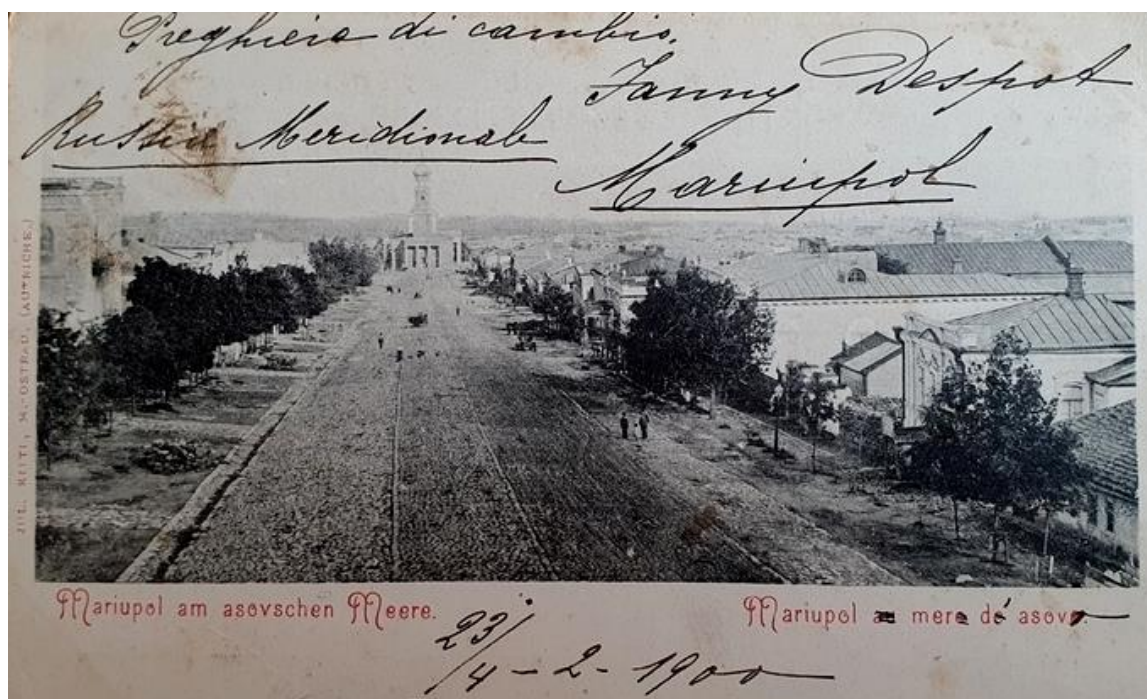 Preghiera di cambio.
Fanny Despot
Russia Meridionale
Mariupol
Mariupol am asovschen Meere.
Mariupol a mere de asov
23/4-2-1900